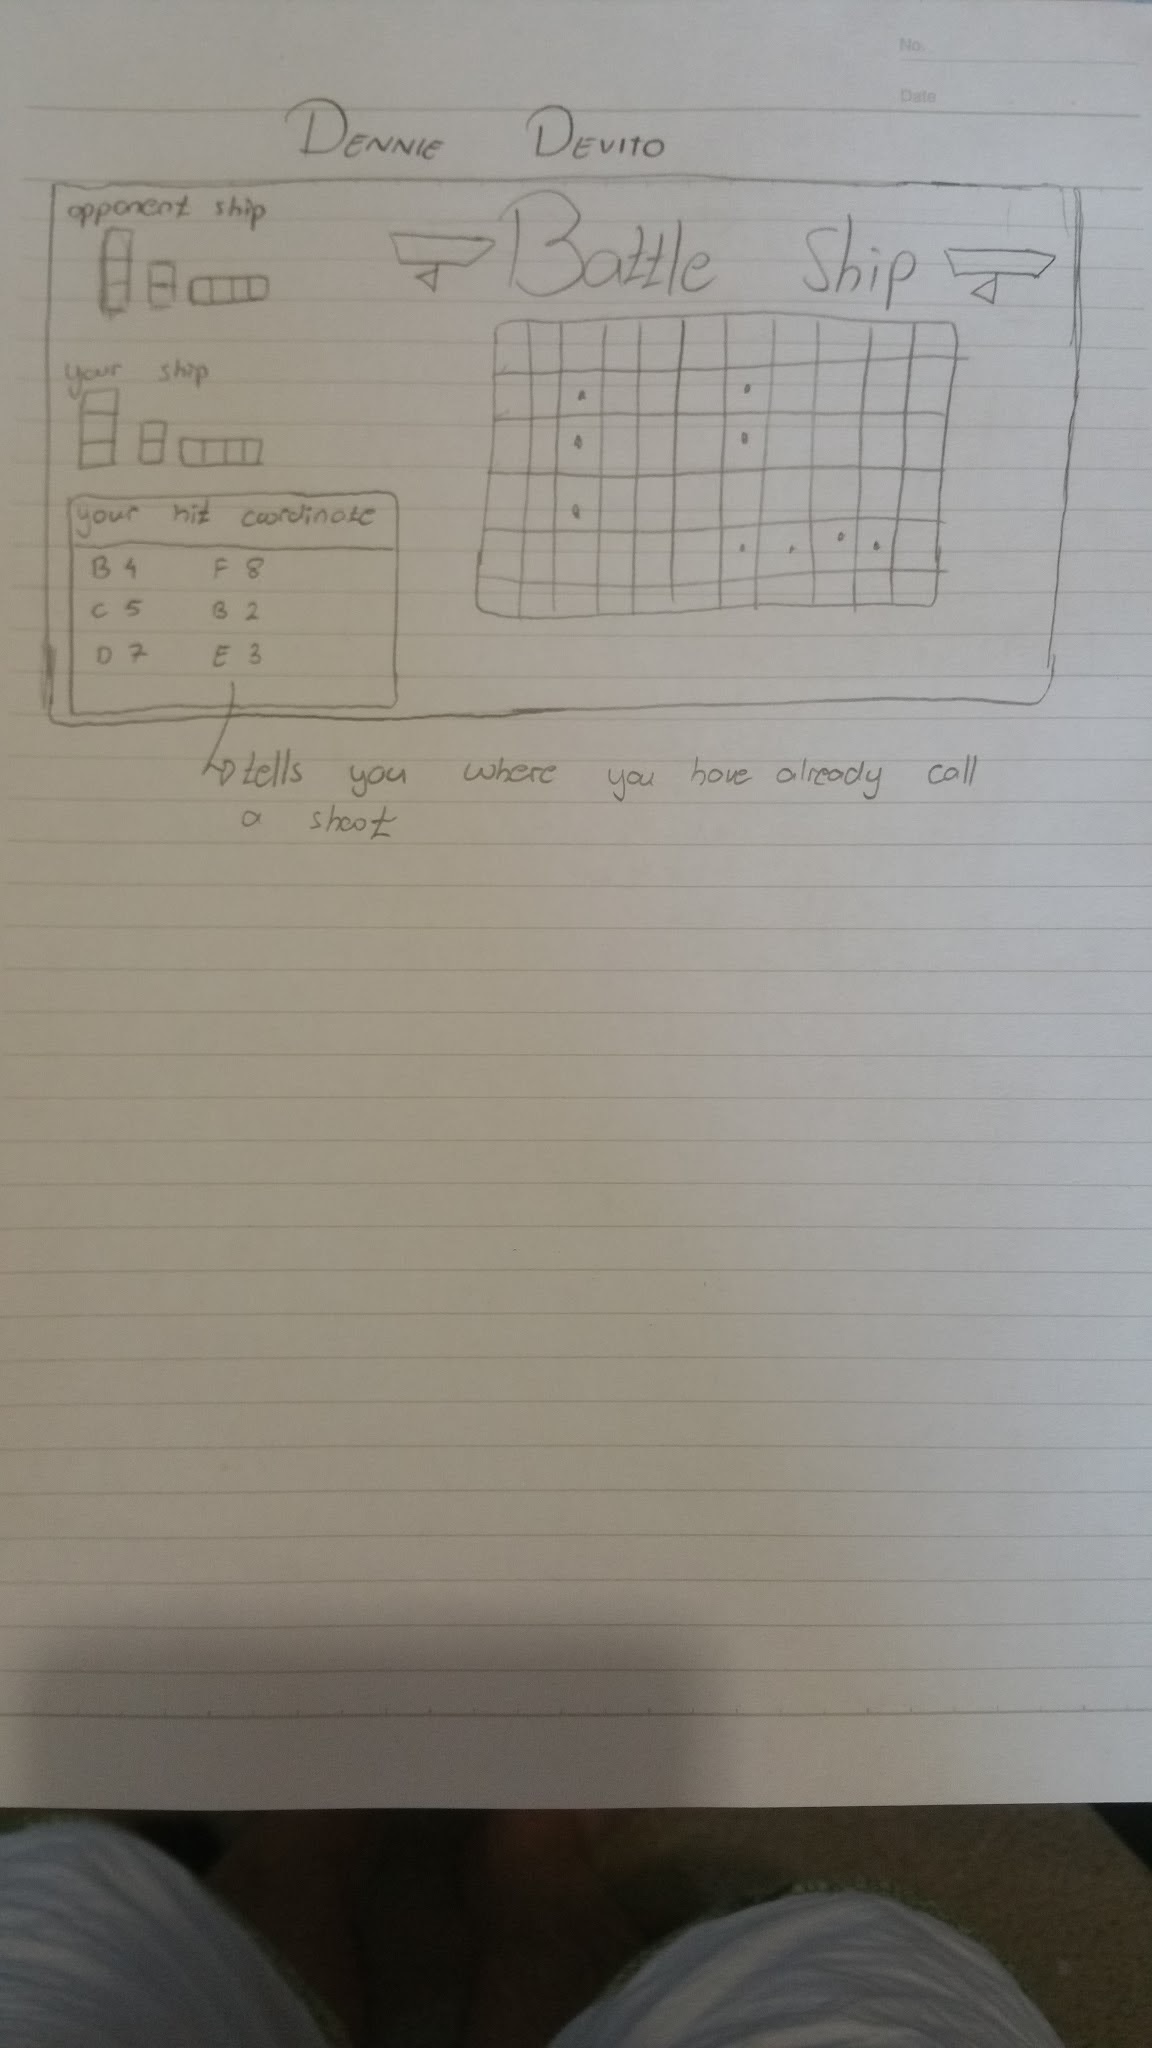 No.
Date
DENNIE DEVITO
opponent ship
Battle Ship
your ship
your hit coordinate
B 4 F 8
C 5 B 2
D 7 E 3
tells you where you have already call
a shoot